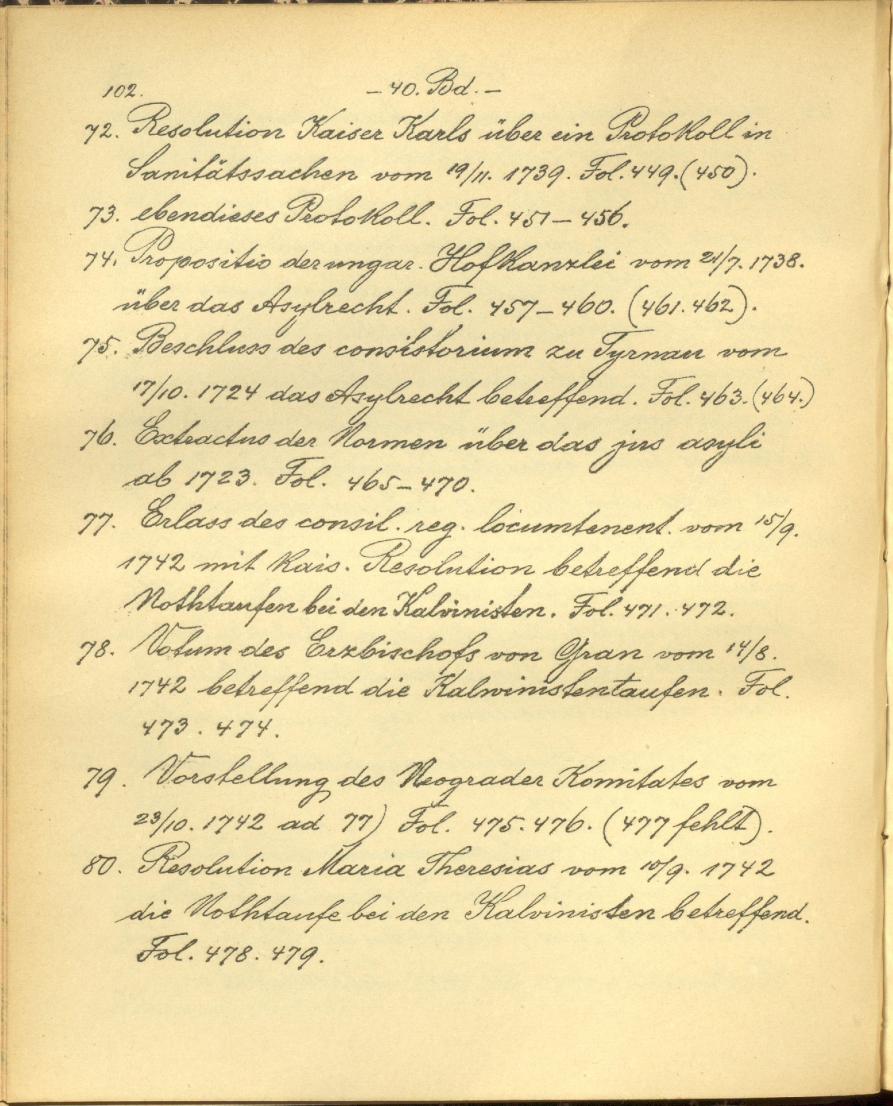 102. – 40. Bd. –
72. Resolution Kaiser Karls über ein Protokoll in
Sanitätssachen vom 19/11. 1739. Fol. 449. (450).
73. ebendieses Protokoll. Fol. 451–456.
74. Propositio der ungar. Hofkanzlei vom 21/7. 1738.
über das Asylrecht. Fol. 457–460. (461. 462).
75. Beschluss des consistorium zu Tyrnau vom
17/10. 1724 das Asylrecht betreffend. Fol. 463. (464.)
76. Extractus der Normen über das jus asyli
ab 1723. Fol. 465–470.
77. Erlass des consil. reg. locumtenent. vom 15/9.
1742 mit kais. Resolution betreffend die
Nothtaufen bei den Kalvinisten. Fol. 471. 472.
78. Votum des Erzbischofs von Gran vom 14/8.
1742 betreffend die Kalwinistentaufen. Fol.
473. 474.
79. Vorstellung des Neograder Komitates vom
23/10. 1742 ad 77) Fol. 475. 476. (477 fehlt).
80. Resolution Maria Theresias vom 10/9. 1742
die Nothtaufe bei den Kalvinisten betreffend.
Fol. 478. 479.